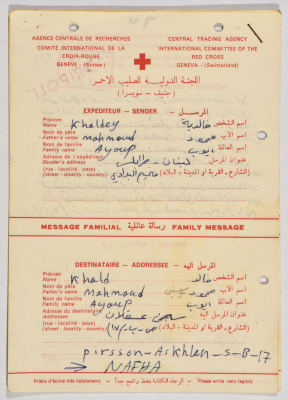 AGENCE CENTRALE DE RECHERCHES
COMITÉ INTERNATIONAL DE LA
CROIX-ROUGE
GENÈVE - (Suisse)
CENTRAL TRACING AGENCY
INTERNATIONAL COMMITTEE OF THE
RED CROSS
GENEVA - (Switzerland)
اللجنة الدولية للصليب الاحمر
(جنيف - سويسرا)
EXPÉDITEUR - SENDER المرسل:
Prénom
Name Khaldey خالدية اسم الشخص
Nom du père
Father's name mahmoud محمود اسم الأب
Nom de famille
Family name Ayoup ايوب اسم العائلة
Adresse de l'expéditeur
Sender's address لبنان - بعلبك عنوان المرسل
(rue - localité - pays)
(street - locality - country) (الشارع - القرية او المدينة - البلاد)
MESSAGE FAMILIAL رسالة عائلية FAMILY MESSAGE
DESTINATAIRE - ADDRESSEE المرسل اليه:
Prénom
Name Khald خالد اسم الشخص
Nom du père
Father's name Mahmoud محمود اسم الأب
Nom de famille
Family name Ayoup ايوب اسم العائلة
Adresse du destinataire
Addresse سجن عسقلان عنوان المرسل اليه
(rue - localité - pays)
(street - locality - country) (الشارع - القرية او المدينة - البلاد)
pirsson-Askhlan-5-B-17
NAFHA
Prière d'écrire très lisiblement - الرجاء الكتابة بخط واضح جداً - Please write very legibly